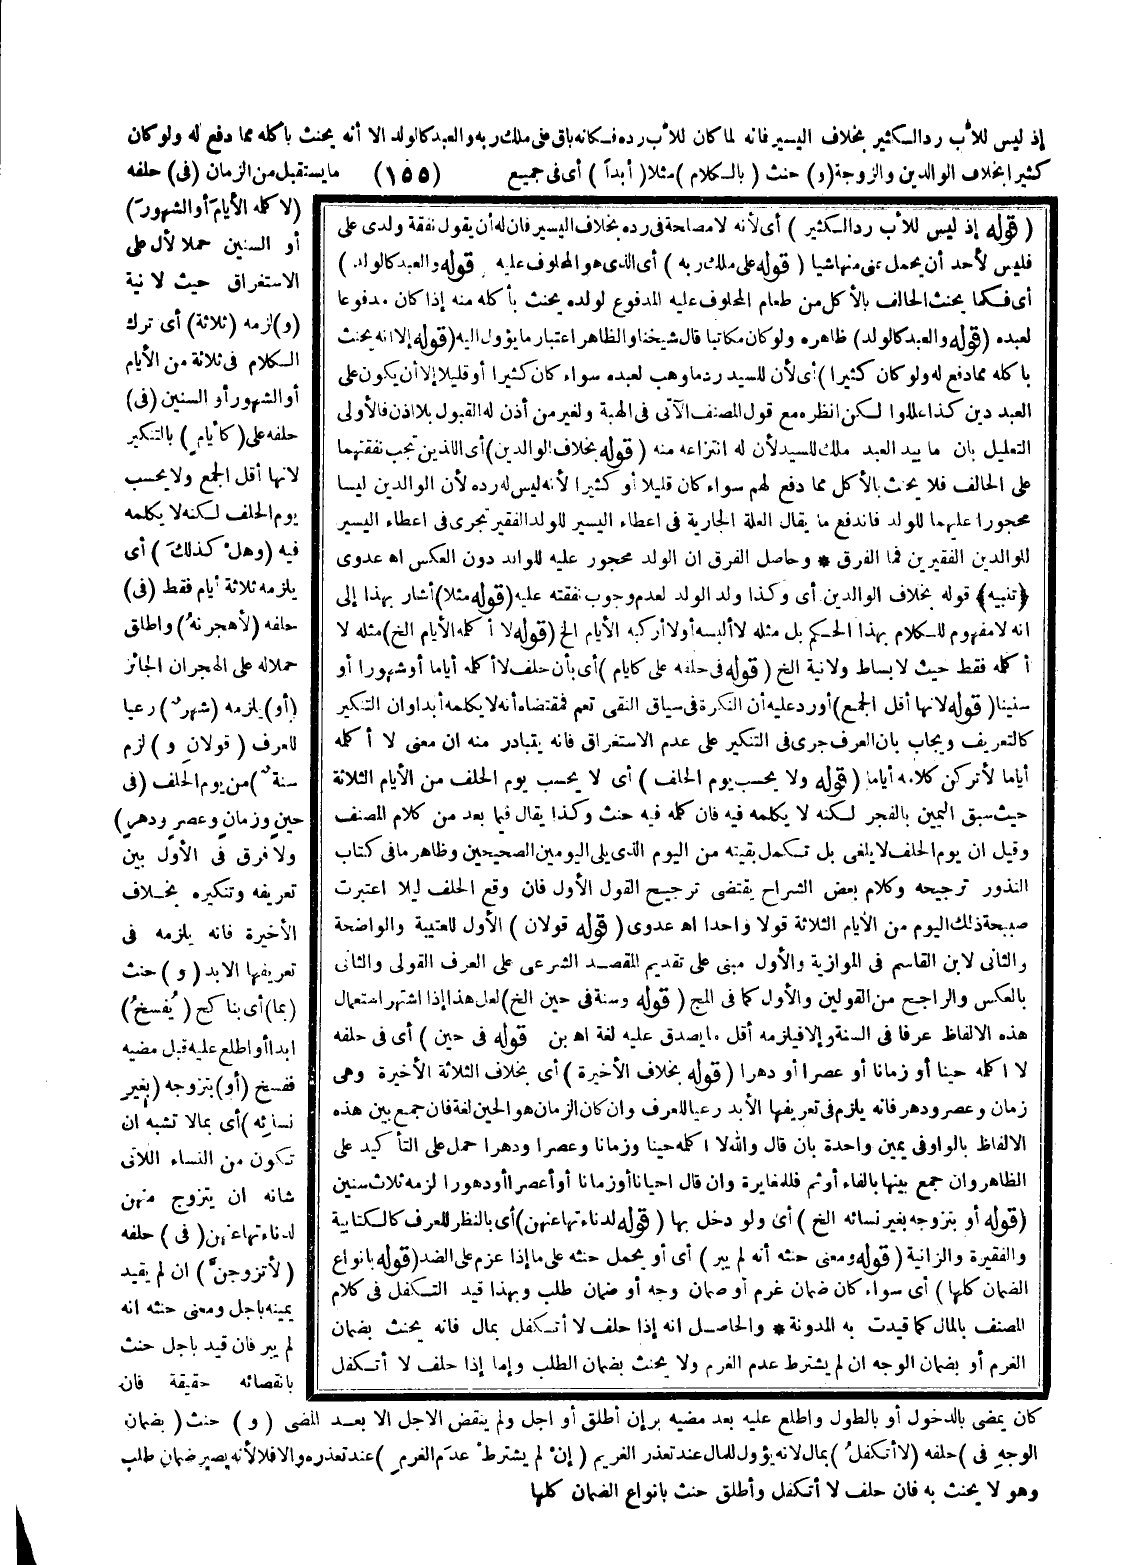 إذ ليس للأب رد الكثير بخلاف اليسير فانه لما كان للأب رده فكانه باق على ملك ربه والعبد كالولد الا أنه يحنث باكله مما دفع له ولو كان
كثيرا بخلاف الوالدين والزوجة (و) حنث (بالكلام) مثلا (أبداً) أى فى جميع (١٥٥) ما يستقبل من الزمان (فى) حلفه
(لا كلمه الأيام أو الشهور)
أو السنين حملا لأل على
الاستغراق حيث لا نية
(و) لزمه (ثلاثة) أى ترك
الكلام فى ثلاثة من الأيام
أو الشهور أو السنين (فى)
حلفه على (كأيام) بالتنكير
لانها أقل الجمع ولا يحسب
يوم الحلف لكنه لا يكلمه
فيه (وهل كذلك) أى
يلزمه ثلاثة أيام فقط (فى)
حلفه (لأهجرنه) واطلق
حملا له على الهجران الجائز
(أو) يلزمه (شهر) رعيا
للعرف (قولان و) لزم
(سنة) من يوم الحلف (فى
حين وزمان وعصر ودهر)
ولا فرق فى الأول بين
تعريفه وتنكيره بخلاف
الأخيرة فانه يلزمه فى
تعريفها الابد (و) حنث
(بما) أى بنا كح (يفسخ)
ابدا أو اطلع عليه قبل مضيه
ففسخ (أو) بتزوجه (بغير
نسائه) أى بمالا تشبه ان
تكون من النساء اللاتى
شانه ان يتزوج منهن
لدناءتها عنهن (فى) حلفه
(لأتزوجن) ان لم يقيد
يمينه باجل ومعنى حنثه انه
لم يبر فان قيد باجل حنث
بانقضائه حقيقة فان
(قوله إذ ليس للأب رد الكثير) أى لأنه لا مصلحة فى رده بخلاف اليسير فان له أن يقول نفقة ولدى على
فليس لأحد أن يحمل عنى منها شيا (قوله على ملك ربه) أى الذى هو المحلوف عليه (قوله والعبد كالولد)
أى فكما يحنث الحالف بالأكل من طعام المحلوف عليه المدفوع لولده يحنث بأكله منه إذا كان مدفوعا
لعبده (قوله والعبد كالولد) ظاهره ولو كان مكاتبا قال شيخنا والظاهر اعتبار ما يؤول اليه (قوله إلا انه يحنث
باكله مما دفع له ولو كان كثيرا) أى لأن للسيد رد ما وهب لعبده سواء كان كثيرا أو قليلا إلا أن يكون على
العبد دين كذا عللوا لكن انظره مع قول المصنف الآتى فى الهبة ولغير من أذن له القبول بلا اذن فالأولى
التعليل بان ما بيد العبد ملك للسيد لأن له انتزاعه منه (قوله بخلاف الوالدين) أى اللذين تجب نفقتهما
على الحالف فلا يحنث بالأكل مما دفع لهم سواء كان قليلا أو كثيرا لأنه ليس له رده لأن الوالدين ليسا
محجورا عليهما للولد فاندفع ما يقال العلة الجارية فى اعطاء اليسير للولد الفقير تجرى فى اعطاء اليسير
للوالدين الفقيرين فما الفرق * وحاصل الفرق ان الولد محجور عليه للوالد دون العكس اه عدوى
﴿تنبيه﴾ قوله بخلاف الوالدين أى وكذا ولد الولد لعدم وجوب نفقته عليه (قوله مثلا) أشار بهذا إلى
انه لا مفهوم للكلام بهذا الحكم بل مثله لا ألبسه أو لا أركبه الأيام الخ (قوله لا أكلمه الأيام الخ) مثله لا
أكلمه فقط حيث لا بساط ولا نية الخ (قوله فى حلفه على كايام) أى بأن حلف لا أكلمه أياما أو شهورا أو
سنينا (قوله لانها أقل الجمع) أورد عليه أن النكرة فى سياق النفى تعم فمقتضاه أنه لا يكلمه أبدا وان التنكير
كالتعريف ويجاب بان العرف جرى فى التنكير على عدم الاستغراق فانه يتبادر منه ان معنى لا أكلمه
أياما لأتركن كلامه أياما (قوله ولا يحسب يوم الحلف) أى لا يحسب يوم الحلف من الأيام الثلاثة
حيث سبق اليمين بالفجر لكنه لا يكلمه فيه فان كلمه فيه حنث وكذا يقال فيما بعد من كلام المصنف
وقيل ان يوم الحلف لا يلغى بل تكمل بقيته من اليوم الذى يلى اليومين الصحيحين وظاهر ما فى كتاب
النذور ترجيحه وكلام بعض الشراح يقتضى ترجيح القول الأول فان وقع الحلف ليلا اعتبرت
صبيحة ذلك اليوم من الأيام الثلاثة قولا واحدا اه عدوى (قوله قولان) الأول للعتبية والواضحة
والثانى لابن القاسم فى الموازية والأول مبنى على تقديم المقصد الشرعى على العرف القولى والثانى
بالعكس والراجح من القولين والأول كما فى المج (قوله وسنة فى حين الخ) لعل هذا إذا اشتهر استعمال
هذه الالفاظ عرفا فى السنة وإلا فيلزمه أقل ما يصدق عليه لغة اه بن (قوله فى حين) أى فى حلفه
لا اكلمه حينا أو زمانا أو عصرا أو دهرا (قوله بخلاف الأخيرة) أى بخلاف الثلاثة الأخيرة وهى
زمان وعصر ودهر فانه يلزم فى تعريفها الأبد رعيا للعرف وان كان الزمان هو الحين لغة فان جمع بين هذه
الالفاظ بالواو فى يمين واحدة بان قال والله لا اكلمه حينا وزمانا وعصرا ودهرا حمل على التأكيد على
الظاهر وان جمع بينها بالفاء أو ثم فللمغايرة وان قال احيانا أو زمانا أو أعصرا أو دهورا لزمه ثلاث سنين
(قوله أو بتزوجه بغير نسائه الخ) أى ولو دخل بها (قوله لدناءتها عنهن) أى بالنظر للعرف كالكتابية
والفقيرة والزانية (قوله ومعنى حنثه أنه لم يبر) أى أو يحمل حنثه على ما إذا عزم على الضد (قوله بانواع
الضمان كلها) أى سواء كان ضمان غرم أو ضمان وجه أو ضمان طلب وبهذا قيد التكفل فى كلام
المصنف بالمال كما قيدت به المدونة * والحاصل انه إذا حلف لا أتكفل بمال فانه يحنث بضمان
الغرم أو بضمان الوجه ان لم يشترط عدم الغرم ولا يحنث بضمان الطلب وإما إذا حلف لا أتكفل
كان يمضى بالدخول أو بالطول واطلع عليه بعد مضيه بر إن أطلق أو اجل ولم ينقض الاجل الا بعد المضى (و) حنث (بضمان
الوجه فى) حلفه (لا أتكفل) بمال لانه يؤول للمال عند تعذر الغريم (إن لم يشترط عدم الغرم) عند تعذره والا فلا لأنه يصير ضمان طلب
وهو لا يحنث به فان حلف لا أتكفل وأطلق حنث بانواع الضمان كلها